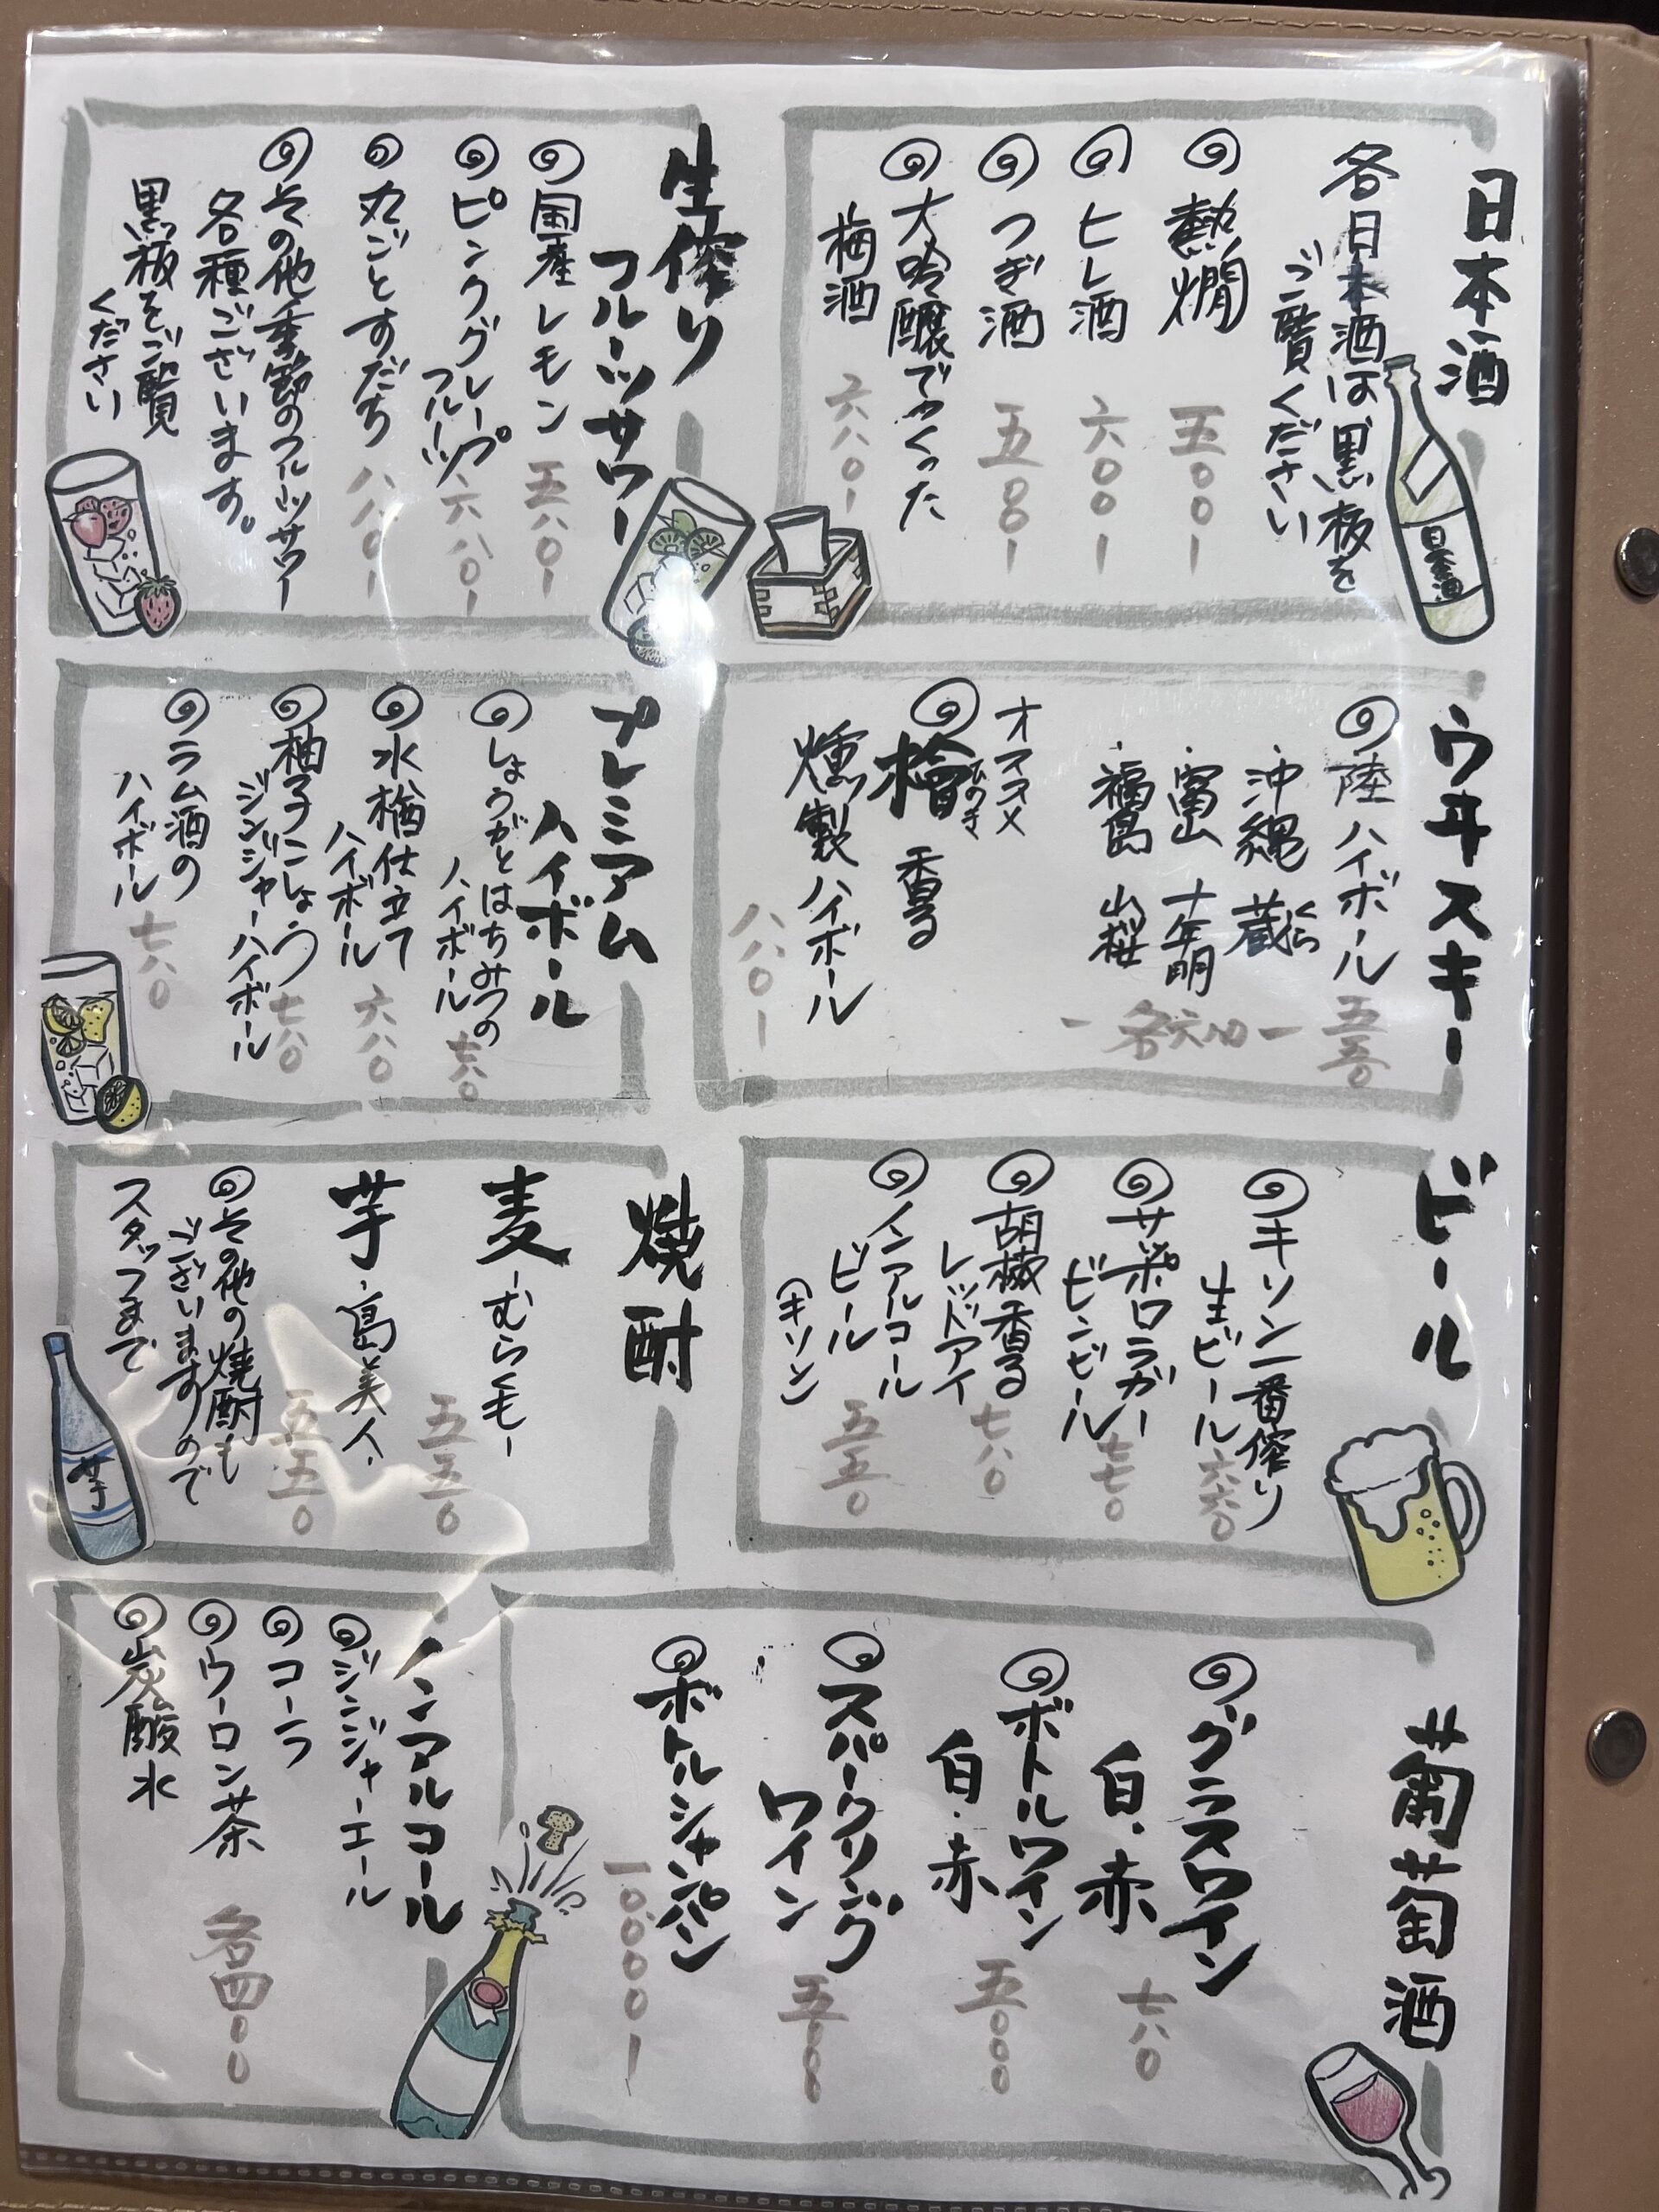 日本酒
各日本酒は黒板を
ご覧ください
熱燗
五〇〇
ヒレ酒
六〇〇
つぎ酒
五〇〇
大吟醸でつくった
梅酒
六八〇
日本酒
生搾り
フルーツサワー
国産レモン
五八〇
ピンクグレープ
フルーツ
六八〇
丸ごとすだち
八八〇
その他季節のフルーツサワー
各種ございます。
黒板をご覧
ください
ウヰスキー
陸ハイボール
五五〇
沖縄 蔵
くら
・富山 十年明
・福島 山桜
各六八〇
オススメ
檜香る
ひのき
燻製ハイボール
八八〇
プレミアム
ハイボール
しょうがとはちみつの
ハイボール
七八〇
水楢仕立て
ハイボール
六八〇
柚子こしょう
ジンジャーハイボール
七八〇
ラム酒の
ハイボール
七八〇
ビール
キリン一番搾り
生ビール
サッポロラガー
ビンビール
七七〇
胡椒香る
レッドアイ
七八〇
ノンアルコール
ビール
(キリン)
五五〇
焼酎
麦
-むらくモ-
五五〇
芋
・島美人・
五五〇
その他の焼酎も
ございますので
スタッフまで
芋
葡萄酒
グラスワイン
白・赤
七八〇
ボトルワイン
白・赤
五〇〇〇
スパークリング
ワイン
五〇〇〇
ボトルシャンパン
一〇〇〇〇
ノンアルコール
ジンジャーエール
コーラ
ウーロン茶
炭酸水
各四〇〇